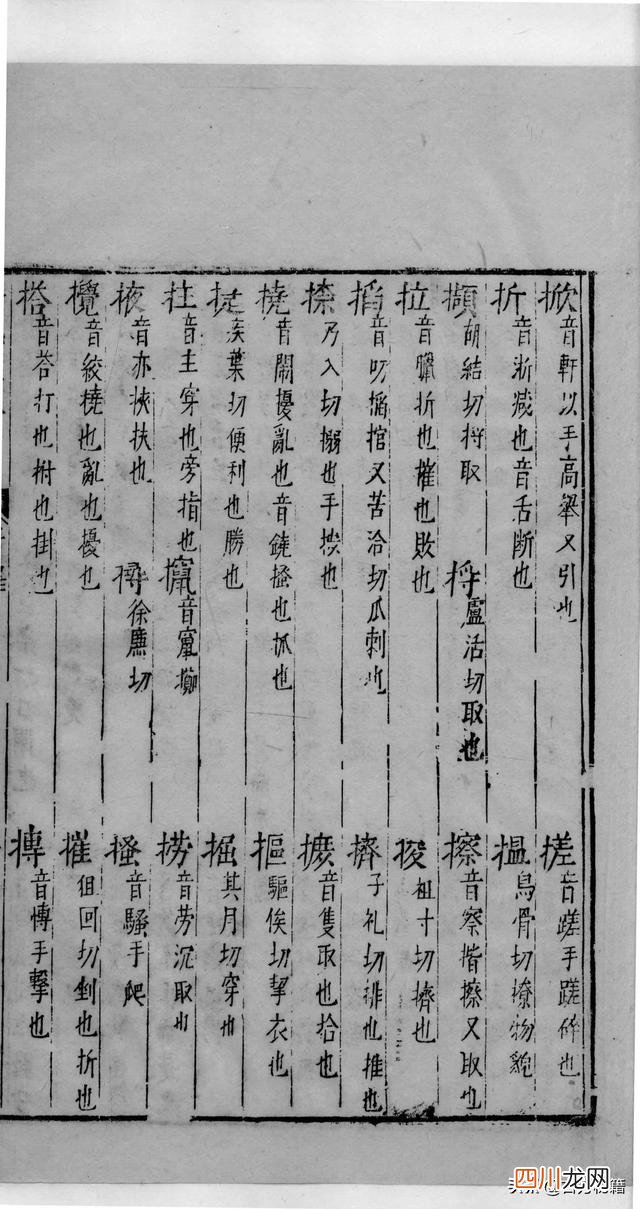 掀 音軒以手高舉又引也
搓 音蹉手蹉碎也
折 音浙减也音舌断也
搵 烏骨切撩物貌
擷 胡結切捋取
捋 盧活切取也
擦 音察揩擦又取也
拉 音臘折也摧也敗也
捘 祖寸切擠也
搯 音叨搯捾又苦洽切爪刺也
擠 子礼切排也推也
乃入切搦也手捺也
摭 音隻取也拾也
撓 音鬧擾亂也音鐃搔也抓也
摳 驅侯切挈衣也
疾葉切便利也勝也
掘 其月切穿也
拄 音主穿也旁指也
攛 音竄擲
撈 音劳沉取也
掖 音亦挾扶也
撏 徐廉切
搔 音騷手爬
攪 音絞撓也亂也擾也
摧 徂回切剉也折也
搭 音荅打也拊也掛也
搏 音博手擊也
四川龙网
头条